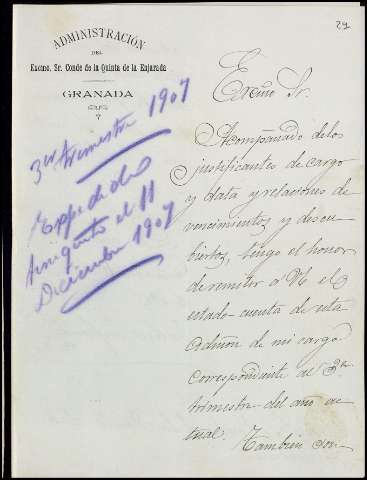 29
ADMINISTRACIÓN
DEL
Excmo. Sr. Conde de la Quinta de la Enjarada
GRANADA
3er trimestre 1907
Expedido
finiquito el 11
Diciembre 1907
Excmo Sr.
Acompañado de los
justificantes de cargo
y data y relaciones de
vencimientos y descu-
biertos, tengo el honor
de remitir a VE el
estado cuenta de esta
Admon de mi cargo
correspondiente al 3er
trimestre del año ac-
tual. Tambien son